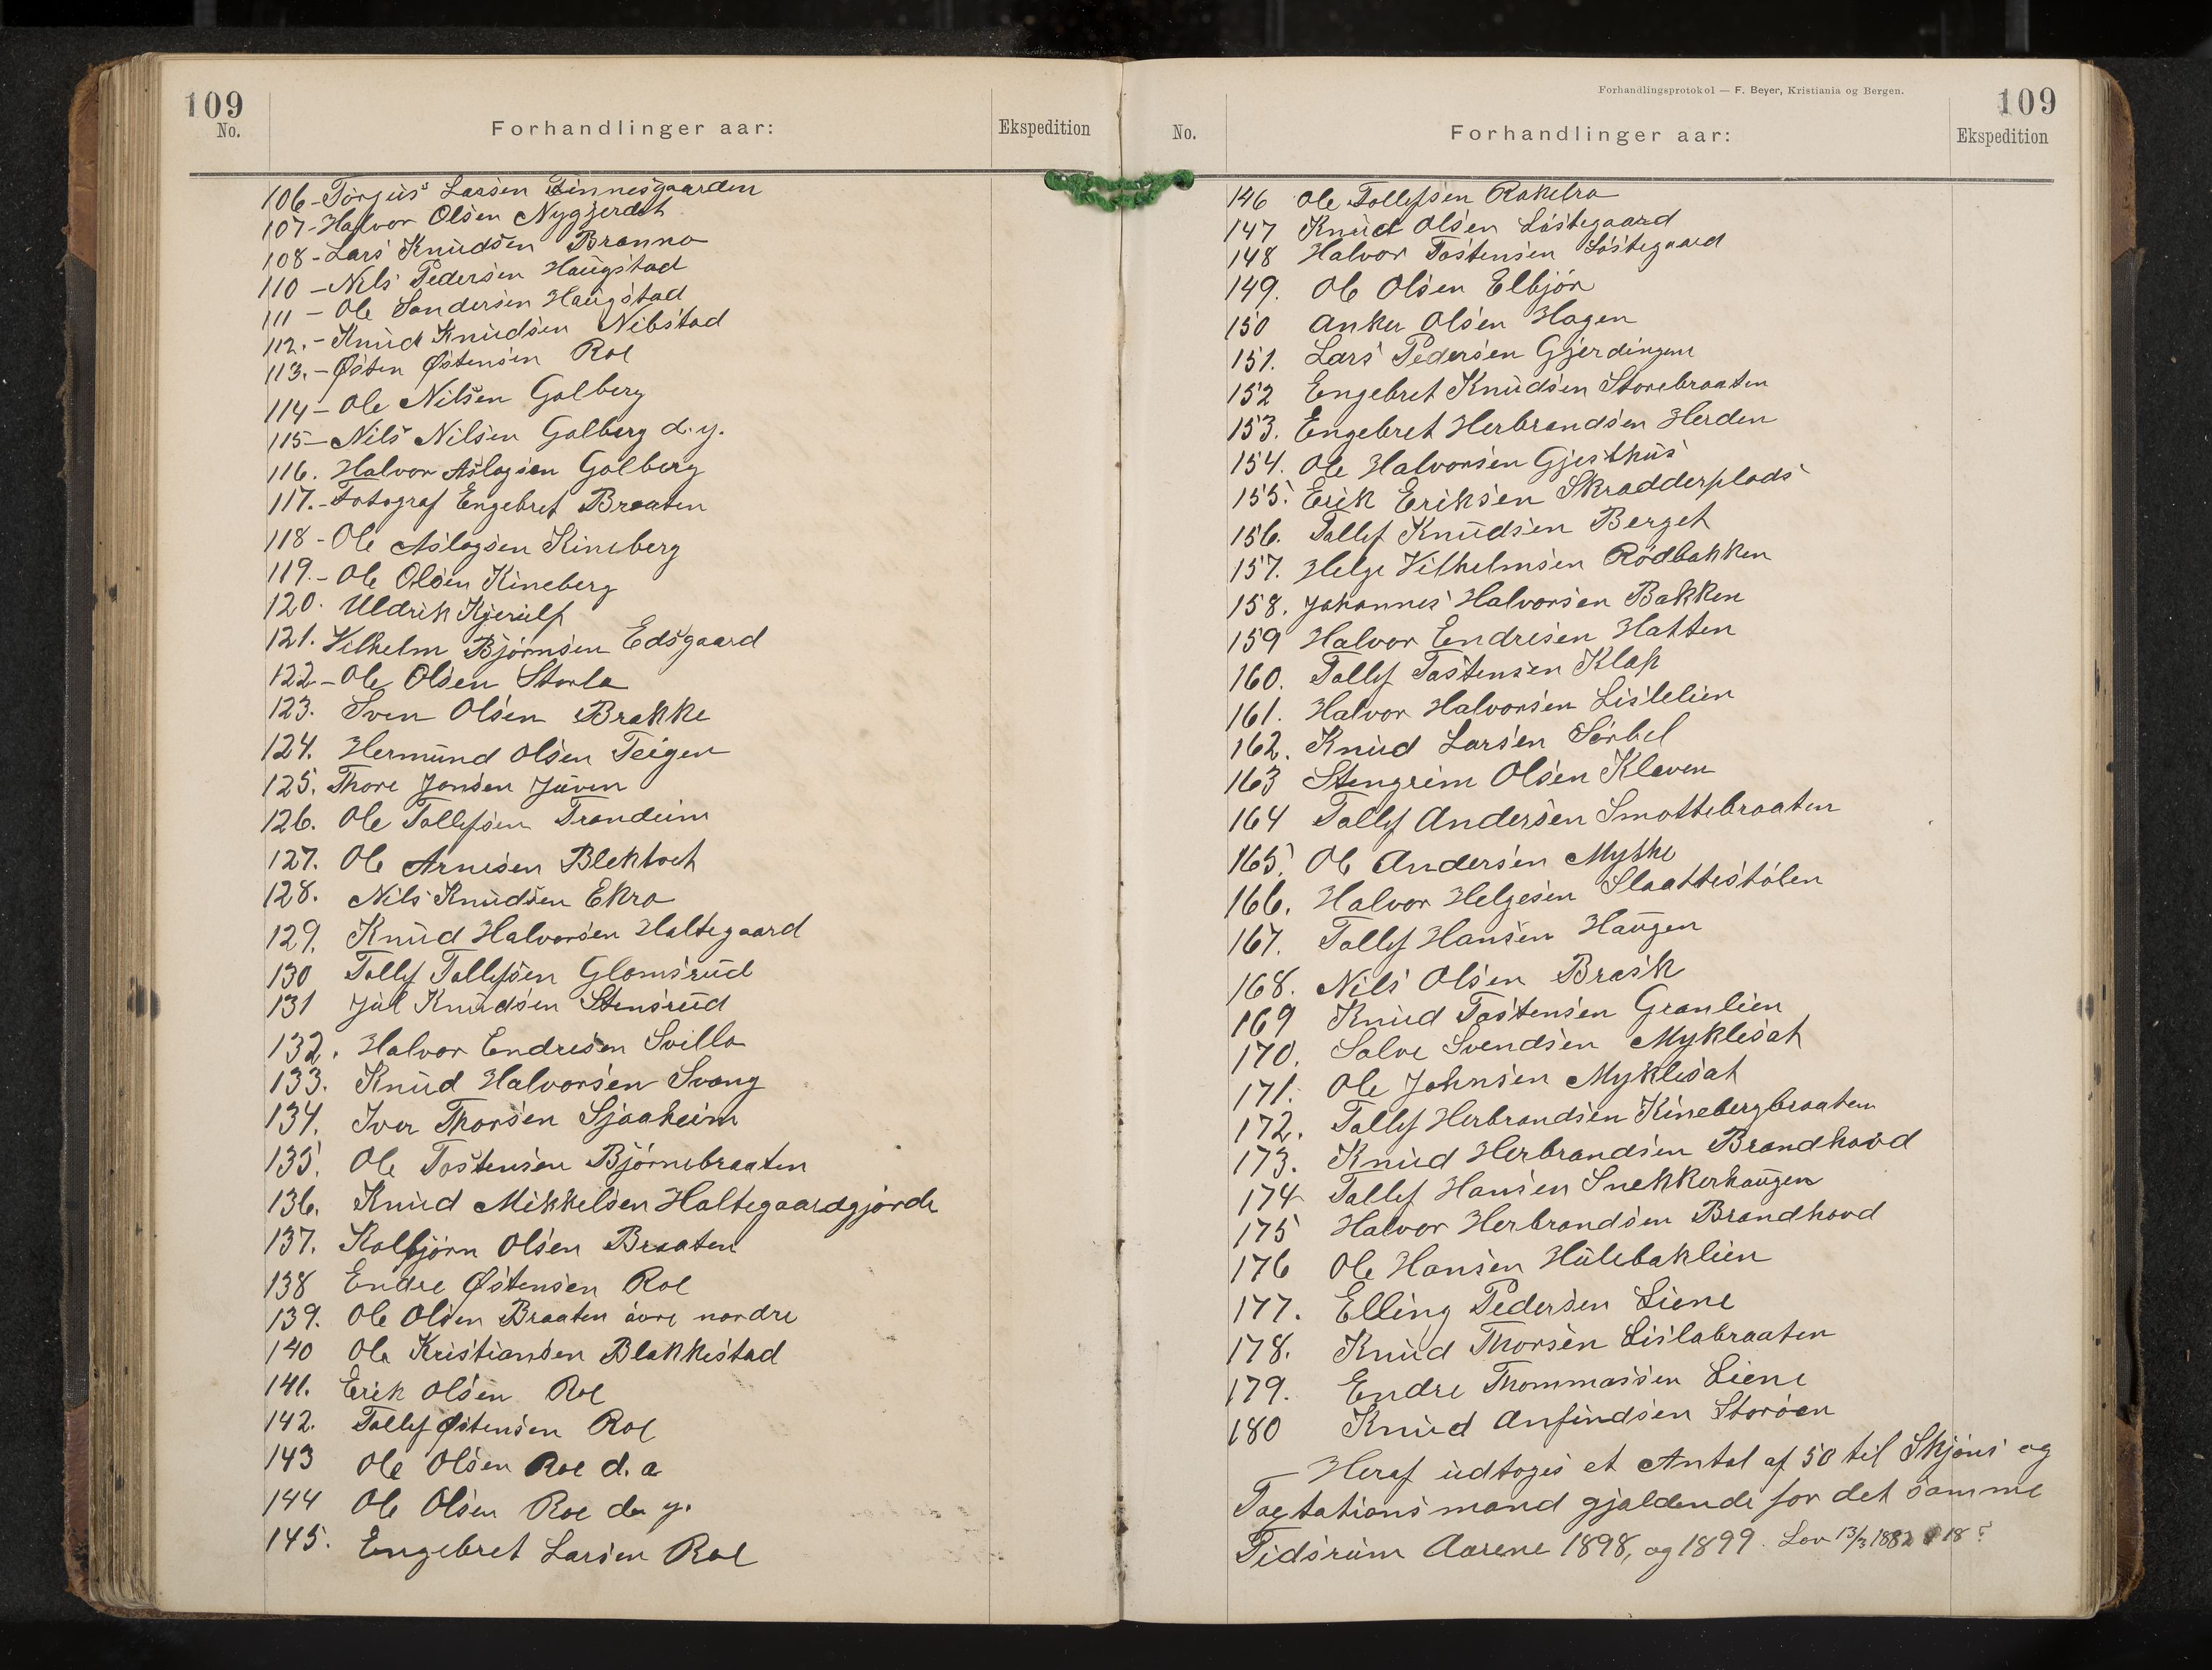 109
No.
Forhandlinger aar:
Ekspedition
106 - Torgus Larsen Finnesgaarden
107 - Halvor Olsen Nygjerdet
108 - Lars Knudsen Branna
110 - Nils Pedersen Haugstad
111 - Ole Sandersen Haugstad
112. - Knud Knudsen Nibstad
113. - Østen Østensen Roe
114 - Ole Nilsen Golberg
115 - Nils Nilsen Golberg d. y.
116. Halvor Aslagsen Golberg
117. - Fotograf Engebret Braaten
118 - Ole Aslagsen Kineberg
119. - Ole Olsen Kineberg
120. Uldrik Kjerulf
121. Vilhelm Bjørnsen Edsgaard
122 - Ole Olsen Storla
123. Sven Olsen Brakke
124. Hermund Olsen Teigen
125. Thore Jonsen Juven
126. Ole Tollefsen Trondeim
127. Ole Arnesen Blektvet
128. Nils Knudsen Ekra
129. Knud Halvorsen Haltegaard
130 Tollef Tollefsen Glomsrud
131 Jul Knudsen Stensrud
132. Halvor Endresen Svilla
133. Knud Halvorsen Svang
134. Iver Thorsen Sjaaheim
135. Ole Tostensen Bjørnebraaten
136. Knud Mikkelsen Haltegaardgjorde
137. Kolbjørn Olsen Braaten
138 Endre Østensen Roe
139. Ole Olsen Braaten øvre nordre
140 Ole Kristiansen Blakkestad
141. Erik Olsen Roe
142. Tollef Østensen Roe
143 Ole Olsen Roe d. æ
144 Ole Olsen Roe d. y.
145. Engebret Larsen Roe
Forhandlingsprotokol — F. Beyer, Kristiania og Bergen.
109
No.
Forhandlinger aar:
Ekspedition
146 Ole Tollefsen Rakelra
147 Knud Olsen Løstegaard
148 Halvor Tostensen Løstegaard
149. Ole Olsen Elbjør
150 Anker Olsen Hagen
151. Lars Pedersen Gjerdingen
152 Engebret Knudsen Storebraaten
153. Engebret Herbrandsen Herden
154. Ole Halvorsen Gjesthus
155. Erik Eriksen Skradderplads
156. Tollef Knudsen Berget
157. Helge Vilhelmsen Rødbakken
158. Johannes Halvorsen Bakken
159 Halvor Endresen Hatten
160. Tollef Tostensen Klap
161. Halvor Halvorsen Lislelien
162. Knud Larsen Sørbel
163 Stengrim Olsen Kleven
164 Tollef Andersen Smottebraaten
165. Ole Andersen Myhre
166. Halvor Helgesen Slaattestølen
167. Tollef Hansen Haugen
168. Nils Olsen Brask
169 Knud Tostensen Granlien
170. Salve Svendsen Myklesat
171. Ole Johnsen Myklesat
172. Tollef Herbrandsen Kinebergbraaten
173. Knud Herbrandsen Brandhovd
174 Tollef Hansen Snekkerhaugen
175 Halvor Herbrandsen Brandhovd
176 Ole Hansen Hulebaklien
177. Elling Pedersen Liene
178. Knud Thorsen Lislabraaten
179. Endre Thommassen Liene
180 Knud Anfindsen Storøen
Heraf udtoges et Antal af 50 til Skjøns og
Taxtationsmænd gjældende for det samme
Tidsrum Aarene 1898, og 1899. Lov 13/3 1882 § 18